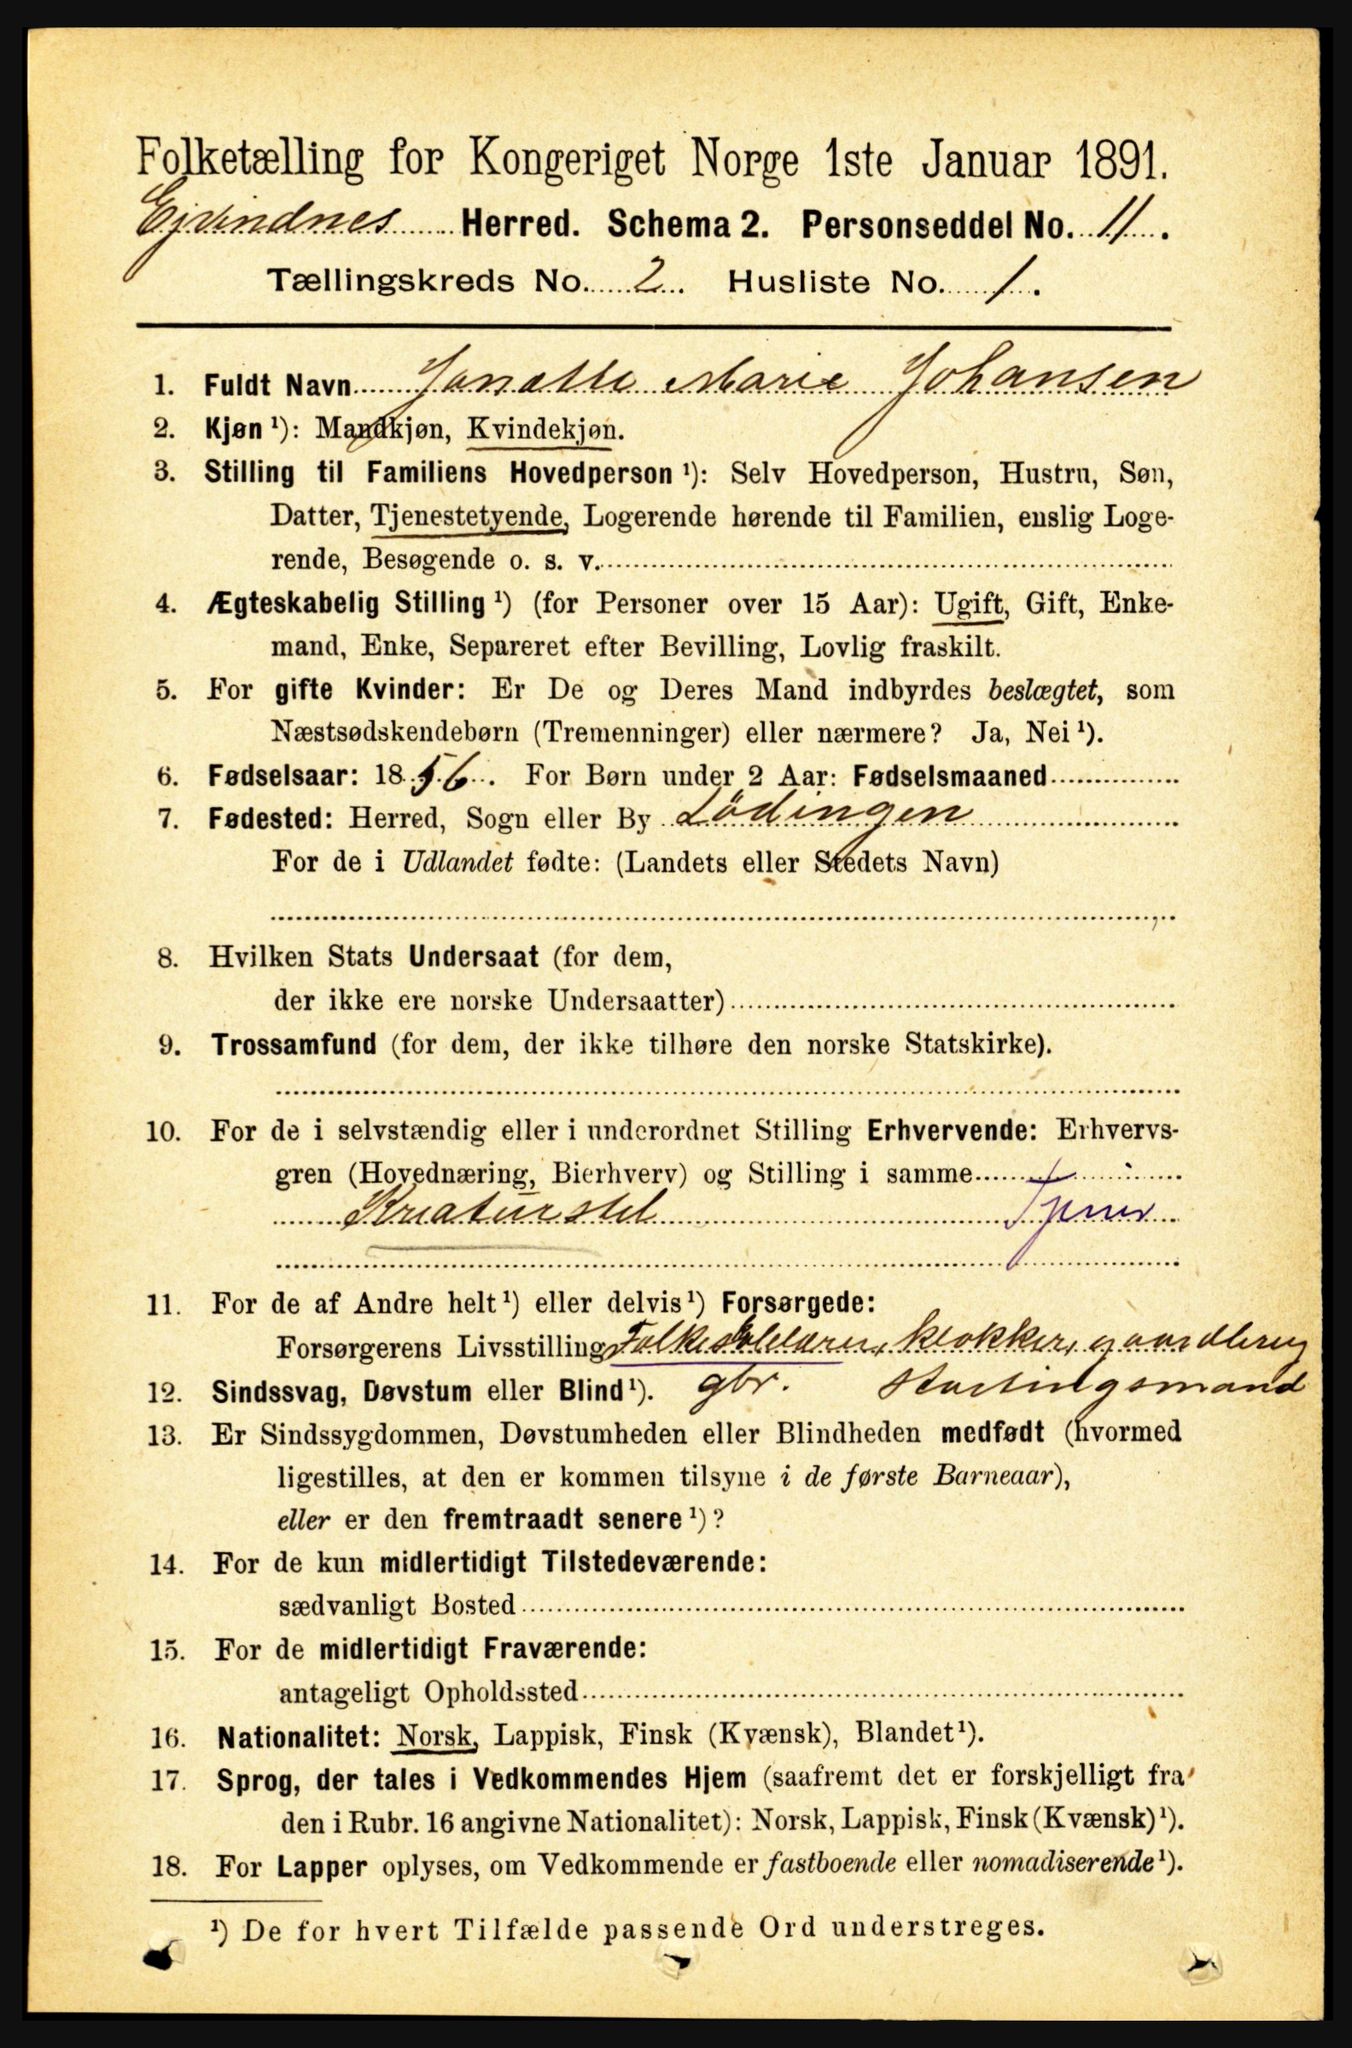 Folketælling for Kongeriget Norge 1ste Januar 1891.
Ejvindnes Herred. Schema 2. Personseddel No. 11.
Tællingskreds No. 2. Husliste No. 1.
1. Fuldt Navn Marie Johansen
2. Kjøn ¹): Mandkjøn, Kvindekjøn.
3. Stilling til Familiens Hovedperson ¹): Selv Hovedperson, Hustru, Søn,
Datter, Tjenestetyende, Logerende hørende til Familien, enslig Loge-
rende, Besøgende o. s. v.
4. Ægteskabelig Stilling ¹) (for Personer over 15 Aar): Ugift, Gift, Enke-
mand, Enke, Separeret efter Bevilling, Lovlig fraskilt.
5. For gifte Kvinder: Er De og Deres Mand indbyrdes beslægtet, som
Næstsødskendebørn (Tremenninger) eller nærmere? Ja, Nei ¹).
6. Fødselsaar: 1856. For Børn under 2 Aar: Fødselsmaaned
7. Fødested: Herred, Sogn eller By Lödingen
For de i Udlandet fødte: (Landets eller Stedets Navn)
8. Hvilken Stats Undersaat (for dem,
der ikke ere norske Undersaatter)
9. Trossamfund (for dem, der ikke tilhøre den norske Statskirke).
10. For de i selvstændig eller i underordnet Stilling Erhvervende: Erhvervs-
gren (Hovednæring, Bierhverv) og Stilling i samme
Kreaturstel
11. For de af Andre helt ¹) eller delvis ¹) Forsørgede:
Forsørgerens Livsstilling klokker,
12. Sindssvag, Døvstum eller Blind ¹). gbr. Stortingsmand
13. Er Sindssygdommen, Døvstumheden eller Blindheden medfødt (hvormed
ligestilles, at den er kommen tilsyne i de første Barneaar),
eller er den fremtraadt senere ¹)?
14. For de kun midlertidigt Tilstedeværende:
sædvanligt Bosted
15. For de midlertidigt Fraværende:
antageligt Opholdssted
16. Nationalitet: Norsk, Lappisk, Finsk (Kvænsk), Blandet ¹).
17. Sprog, der tales i Vedkommendes Hjem (saafremt det er forskjelligt fra
den i Rubr. 16 angivne Nationalitet): Norsk, Lappisk, Finsk (Kvænsk) ¹).
18. For Lapper oplyses, om Vedkommende er fastboende eller nomadiserende ¹).
¹) De for hvert Tilfælde passende Ord understreges.